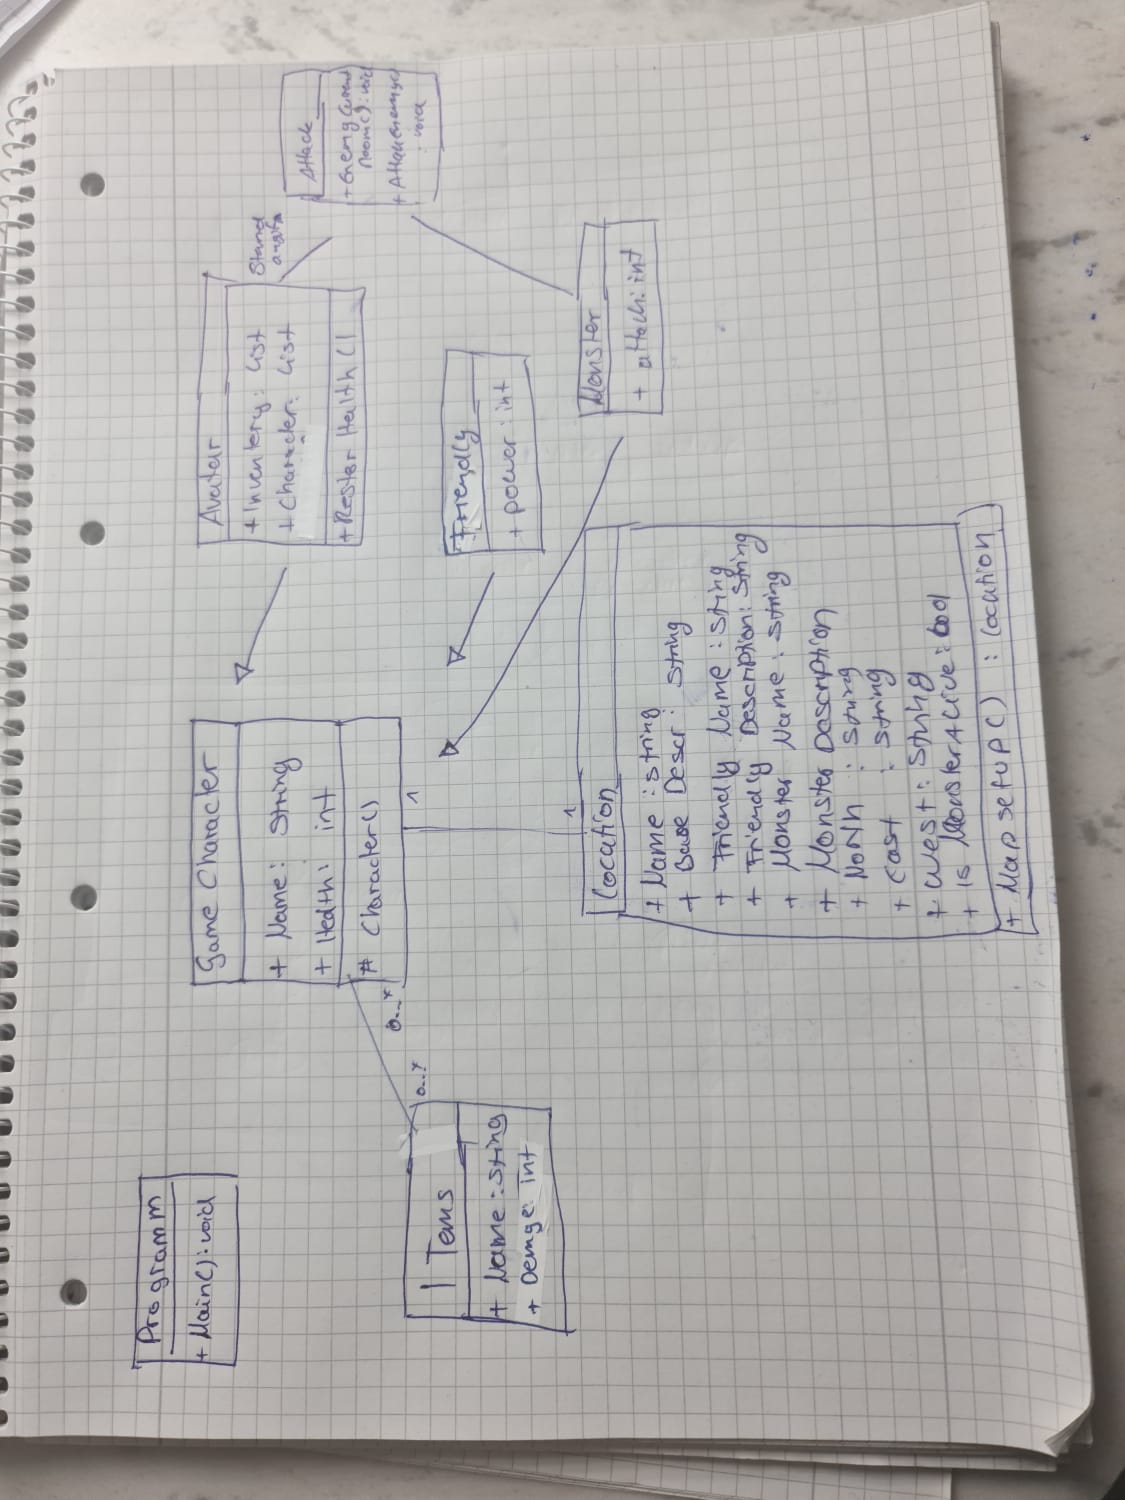 Programm
+ Main(): void
Game Character
+ Name: String
+ Health: int
# Character()
Avatar
+ Inventery: List
+ Character: List
+ Rester Health ()
Stand
Attack
+ Enemy Current
Room(): void
+ Attack enemye
: void
I Tems
+ Name: String
+ Demge: int
0..*
0..*
1
1
Friendly
+ power: int
Monster
+ attack: int
Location
+ Name: String
+ Base Descr: String
+ Friendly Name: String
+ Friendly Description: String
+ Monster Name: String
+ Monster Description
+ North: String
+ East: String
+ West: String
+ is MonsterAlive: bool
+ Map setup(): Location